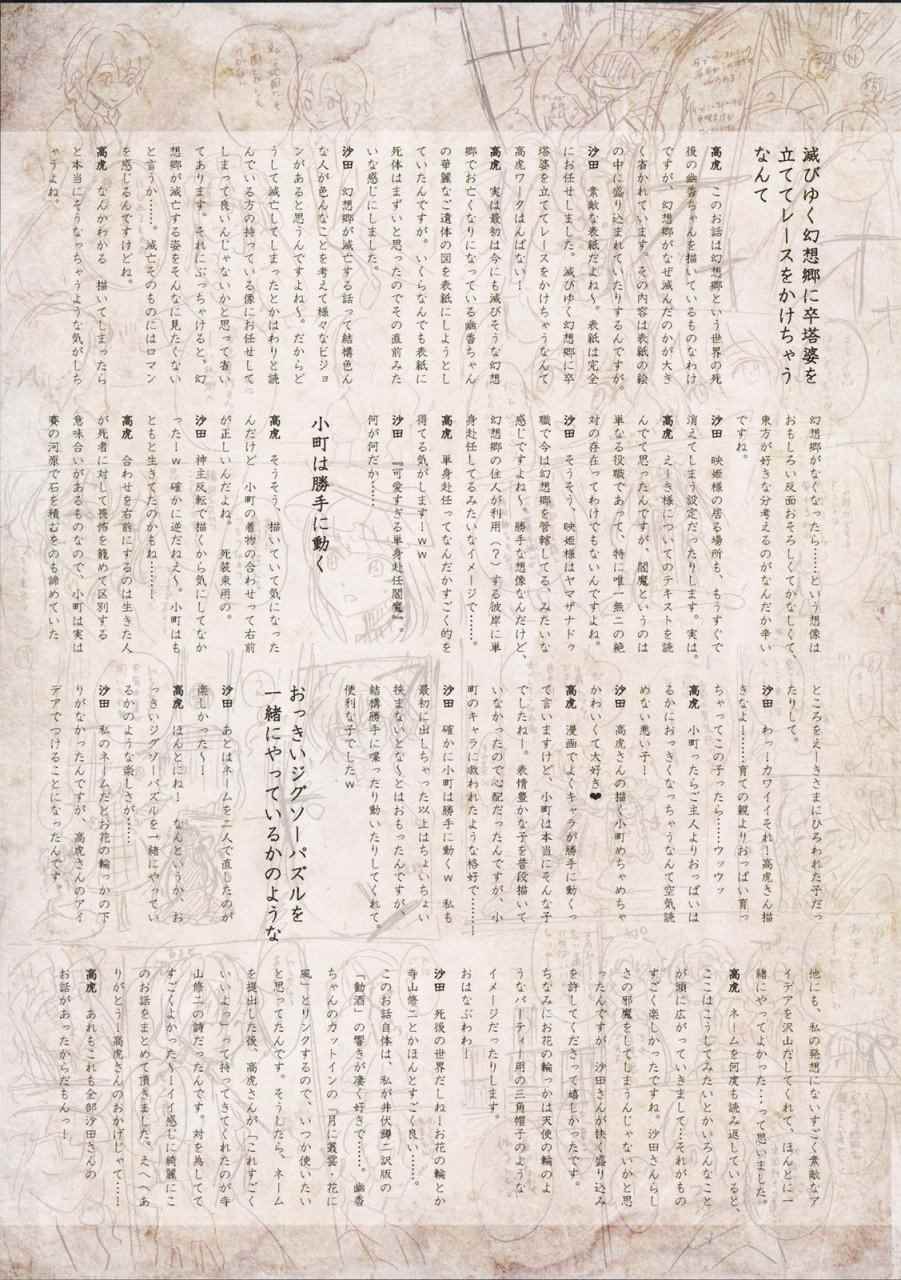 滅びゆく幻想郷に卒塔婆を
立ててレースをかけちゃう
なんて
高虎　このお話は幻想郷という世界の死
後の幽香ちゃんを描いているものなわけ
ですが、幻想郷がなぜ滅んだのかが大き
く省かれています。その内容は表紙の絵
の中に盛り込まれていたりするんですが。
沙田　素敵な表紙だよね～。表紙は完全
にお任せしました。滅びゆく幻想郷に卒
塔婆を立ててレースをかけちゃうなんて
高虎ワークはんぱない！
高虎　実は最初は今にも滅びそうな幻想
郷でお亡くなりになっている幽香ちゃん
の華麗なご遺体の図を表紙にしようとし
ていたんですが。いくらなんでも表紙に
死体はまずいと思ったのでその直前みた
いな感じにしました。
沙田　幻想郷が滅亡する話って結構色ん
な人が色んなことを考えて様々なビジョ
ンがあると思うんですよね～。だからど
うして滅亡してしまったとかはわりと読
んでいる方の持っている像にお任せして
しまって良いんじゃないかと思って省い
てあります。それにぶっちゃけると。幻
想郷が滅亡する姿をそんなに見たくない
と言うか……。滅亡そのものにはロマン
を感じるんですけどね。
高虎　なんかわかる　描いてしまったら
と本当にそうなっちゃうような気がしち
ゃうよね。
幻想郷がなくなったら……という想像は
おもしろい反面おそろしくてかなしくて、
東方が好きな分考えるのがなんだか辛い
ですね。
沙田　映姫様の居る場所も、もうすぐで
消えてしまう設定だったりします。実は。
高虎　えーき様についてのテキストを読
んでて思ったんですが、閻魔というのは
単なる役職であって、特に唯一無二の絶
対の存在ってわけでもないんですよね。
沙田　そうそう、映姫様はヤマザナドゥ
職で今は幻想郷を管轄してる、みたいな
感じですよね～。勝手な想像なんだけど、
幻想郷の住人が利用（？）する彼岸に単
身赴任してるみたいなイメージで……。
高虎　単身赴任ってなんだかすごく的を
得てる気がします！ｗｗ
沙田　『可愛すぎる単身赴任閻魔』。
何が何だか……
小町は勝手に動く
高虎　そうそう、描いていて気になった
んだけど　小町の着物の合わせって右前
が正しいんだよね。　死装束用の。
沙田　神主反転で描くから気にしてなか
ったーｗ　確かに逆だねえ～。小町はも
ともと生きてたのかもね………
高虎　合わせを右前にするのは生きた人
が死者に対して畏怖を籠めて区別する
意味合いがあるものなので、小町は実は
賽の河原で石を積むをのも諦めていた
ところをえーきさまにひろわれた子だっ
たりして。
沙田　わっーカワイイそれ！高虎さん描
きなよー……育ての親よりおっぱい育っ
ちゃってこの子ったら……ウッウッ
高虎　小町ったらご主人よりおっぱいは
るかにおっきくなっちゃうなんて空気読
めない悪い子！
沙田　高虎さんの描く小町めちゃめちゃ
かわいくて大好き❤
高虎　漫画でよくキャラが勝手に動くっ
て言いますけど、小町は本当にそんな子
でしたねー。表情豊かな子を普段描いて
いなかったので心配だったんですが、小
町のキャラに救われたような格好で………
沙田　確かに小町は勝手に動くｗ　私も
最初に出しちゃった以上はちょいちょい
挟まないとな～とはおもったんですが、
結構勝手に喋ったり動いたりしてくれて
便利な子でしたｗ
おっきいジグソーパズルを
一緒にやっているかのような
沙田　あとはネームを二人で直したのが
楽しかった～！
高虎　ほんとにね！　なんというか、お
っきいジグソーパズルを一緒にやってい
るかのような楽しさが……
沙田　私のネームだとお花の輪っかの下
りがなかったんですが、高虎さんのアイ
デアでつけることになったんです。
他にも、私の発想にないすごく素敵なア
イデアを沢山だしてくれて、ほんとに一
緒にやってよかった…って思いました。
高虎　ネームを何度も読み返していると、
ここはこうしてみたいとかいろんなこと
が頭に広がっていきまして…それがもの
すごく楽しかったですね。沙田さんらし
さの邪魔をしてしまうんじゃないかと思
ったんですが　沙田さんが快く盛り込み
を許してくださって嬉しかったです。
ちなみにお花の輪っかは天使の輪のよ
うなパーティー用の三角帽子のような
イメージだったりします。
おはなぶわわ！
沙田　死後の世界だしねーお花の輪とか
寺山修二とかほんとすごく良い……。
このお話自体は、私が井伏鱒二訳版の
「勧酒」の響きが凄く好きで……。幽香
ちゃんのカットインの「月に叢雲・花に
風」とリンクするので、いつか使いたい
と思ってたんです。そうしたら、ネーム
を提出した後、高虎さんが「これすごく
いいよっ」って持ってきてくれたのが寺
山修二の詩だったんです。対を為してて
すごくよかった～ーイイ感じに綺麗にこ
のお話をまとめて頂きました。えへへあ
りがとうー高虎さんのおかげじゃて……
高虎　あれもこれも全部沙田さんの
お話があったからだもんっー